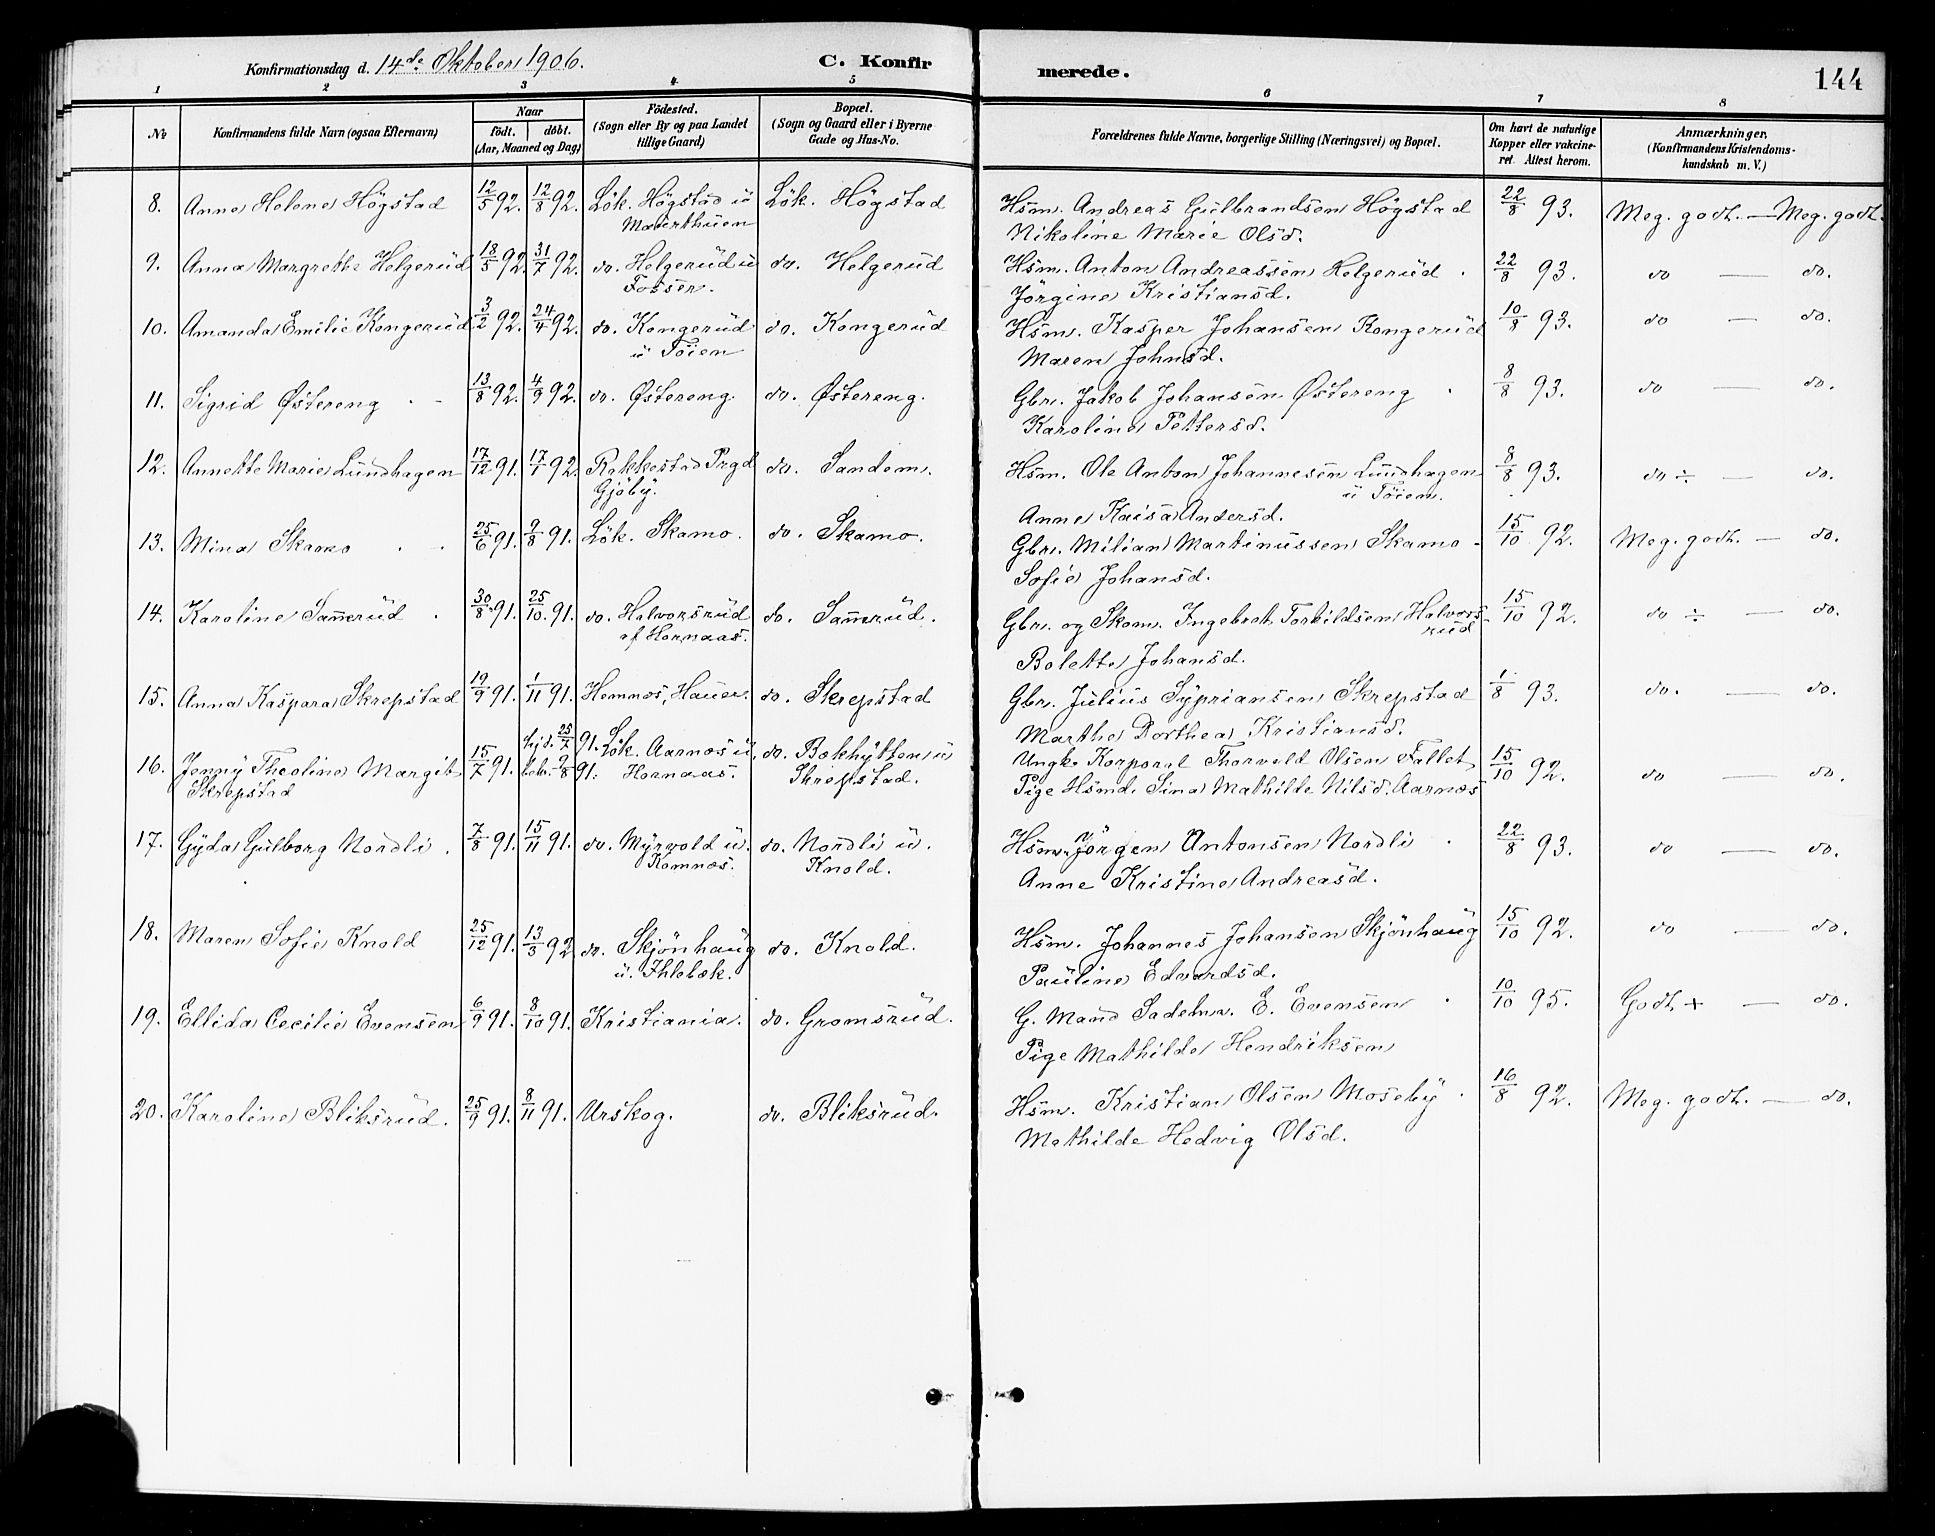 Konfirmationsdag d. 14de Oktober 1906. C. Konfir merede. 144
1 2 3 4 5 6 7 8
No Konfirmandens fulde Navn (ogsaa Efternavn) Naar födt. döbt. (Aar, Maaned og Dag) Födested. (Sogn eller By og paa Landet tillige Gaard) Bopæl. (Sogn og Gaard eller i Byerne Gade og Hus-No. Forældrenes fulde Navne, borgerlige Stilling (Næringsvei) og Bopæl. Om havt de naturlige Kopper eller vakcineret. Attest herom. Anmærkninger, (Konfirmandens Kristendomskundskab m. V.)
8. Anne Helene Högstad 12/5 92. 12/8 92. Lök. Högstad u Lök. Högstad Hsm. Andreas Gulbrandsen Högstad 22/8 93. Meg. godt. — Meg. godt.
Nikoline Marie Olsd.
9. Anna Margrethe Helgerud 18/5 92. 31/7 92. do. Helgerud u do. Helgerud Hsm. Anton Andreassen Helgerud 22/8 93. do — do.
Fosser. Jörgine Kristiansd.
10. Amanda Emilie Kongerud 3/2 92. 24/4 92. do. Kongerud do. Kongerud Hsm. Kasper Johansen Kongerud 10/8 93. do — do.
u Töien Maren Johnsd.
11. Sigrid Østereng 13/8 92. 4/9 92. do. Østereng. do. Østereng. Gbr. Jakob Johansen Østereng 8/8 93. do — do.
Karoline Pettersd.
12. Annette Marie Lundhagen 17/12 91. 17/1 92. Rakkestad Prgd do. Sandem. Hsm. Ole Anton Johannesen Lundhagen 8/8 93. do ÷ — do.
Gjöby. u Töien.
Anne Kaisa Andersd.
13. Mina Skamo 25/6 91. 9/8 91. Lök. Skamo. do. Skamo. Gbr. Milian Martinussen Skamo 15/10 92. Meg. godt. — do.
Sofie Johansd.
14. Karoline Samerud 30/8 91. 25/10 91. do. Halvorsrud do. Samerud. Gbr. og Skom. Ingebret Torkildsen Halvors- 15/10 92. do ÷ — do.
af Hornaas. rud
Bolette Johansd.
15. Anna Kaspara Skrepstad 19/9 91. 1/11 91. Hemnes, Hauer. do. Skrepstad Gbr. Julius Sypriansen Skrepstad 1/8 93. do. — do.
Marthe Dorthea Kristiansd.
16. Jenny Theoline Margit 15/7 91. hjd. 25/7 91. bek. 9/8 91. Lök. Aarnes u do. Bekhytten u Ungk. Korporal Thorvald Olsen Fallet 15/10 92. do — do.
Skrepstad Hornaas. Skrepstad. Pige Hsmd. Sina Mathilde Nilsd. Aarnes
17. Gyda Gulborg Nordli 7/8 91. 15/11 91. do. Myrvold u. do. Nordli u. Hsm. Jörgen Antonsen Nordli 22/8 93. do — do.
Komnæs. Knold. Anne Kristine Andreasd.
18. Maren Sofie Knold 25/12 91. 13/3 92 do. Skjönhaug do. Knold. Hsm. Johannes Johansen Skjönhaug 15/10 92. do — do.
u. Ihlebæk. Pauline Edvardsd.
19. Ellida Cecilie Evensen 6/9 91. 8/10 91. Kristiania. do. Gromsrud. G. Mand Sadelm. E. Evensen 10/10 95. Godt + — do.
Pige Mathilde Hendriksen
20. Karoline Bliksrud. 25/9 91. 8/11 91. Urskog. do. Bliksrud. Hsm. Kristian Olsen Moseby 16/8 92. Meg. godt. — do.
Mathilde Hedvig Olsd.